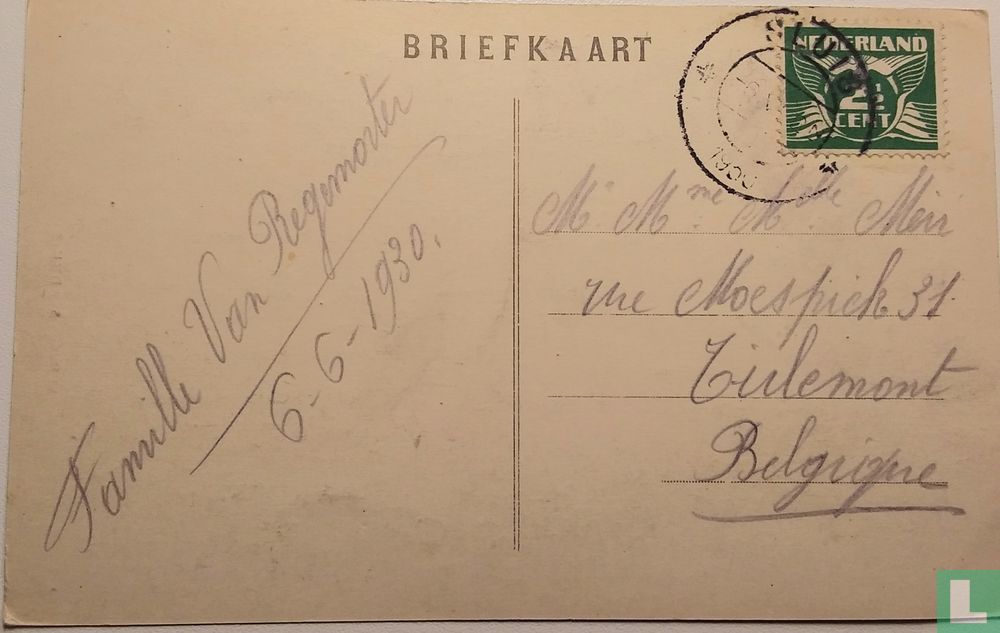 BRIEFKAART
SLUIS
NEDERLAND
2½
CENT
Famille Van Regemorter
6-6-1930.
Mr Mme Melle
rue Moespick 31
Tirlemont
Belgique
L